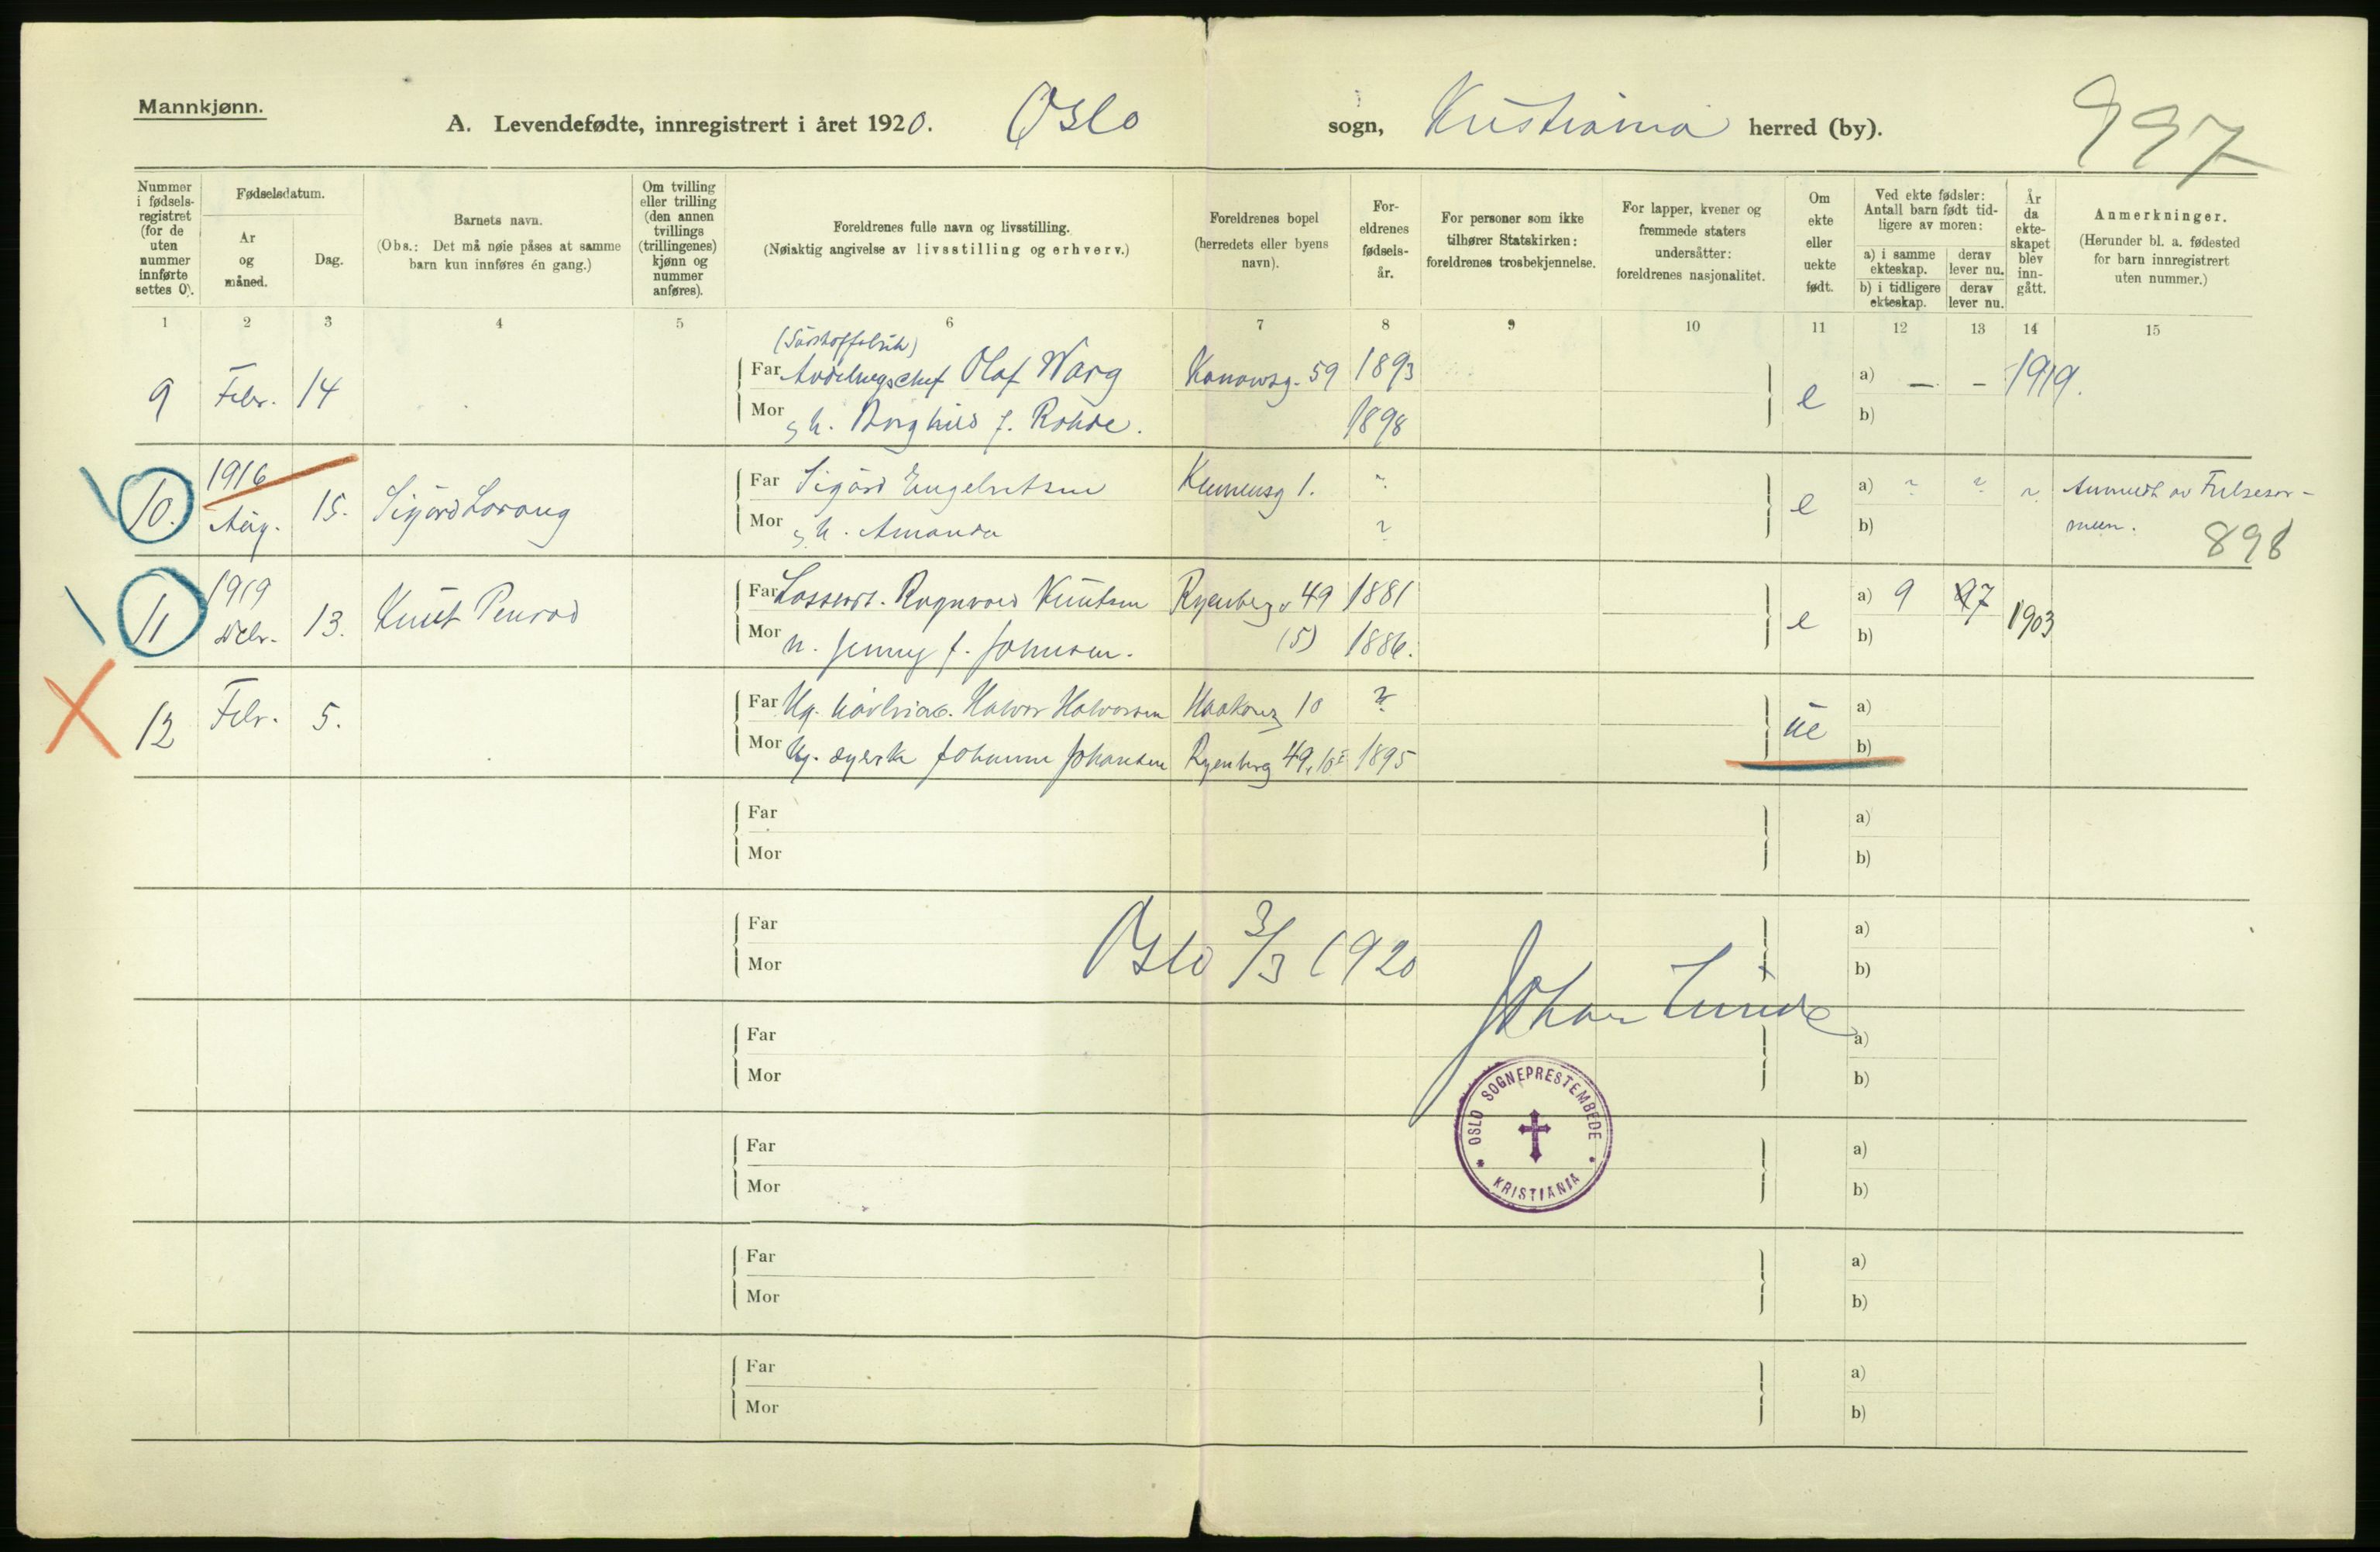 Mannkjønn.
A. Levendefødte, innregistrert i året 1920. Oslo sogn, Kristiania herred (by).
997
Nummer i fødselsregistret (for de uten nummer innførte settes 0).
Fødselsdatum.
År og måned.
Dag.
Barnets navn.
(Obs.: Det må nøie påses at samme barn kun innføres én gang.)
Om tvilling eller trilling (den annen tvillings (trillingenes) kjønn og nummer anføres).
Foreldrenes fulle navn og livsstilling.
(Nøiaktig angivelse av livsstilling og erhverv.)
Foreldrenes bopel (herredets eller byens navn).
Foreldrenes fødselsår.
For personer som ikke tilhører Statskirken: foreldrenes trosbekjennelse.
For lapper, kvener og fremmede staters undersåtter: foreldrenes nasjonalitet.
Om ekte eller uekte født.
Ved ekte fødsler: Antall barn født tidligere av moren:
a) i samme ekteskap.
derav lever nu.
b) i tidligere ekteskap.
derav lever nu.
År da ekteskapet blev inngått.
Anmerkninger.
(Herunder bl. a. fødested for barn innregistrert uten nummer.)
1 2 3 4 5 6 7 8 9 10 11 12 13 14 15
9 Febr. 14
Far Avdelingschef Olaf Warg Konowsg. 59 1893 e a) — – 1919.
Mor h. Borghild f. Rohde. 1898 b)
10. 1916 Aug. 15. Sigurd
Far Sigurd Engebretsen Klemensg 1. ? e a) ? ? ? Anmeldt av
Mor h. Amanda ? b)
898
11 1919 Debr. 13. Knut
Far Ragnvald Knutsen Ryenbergv 49 1881 e a) 9 7 1903
Mor h. Jenny f. Johnsen. (5) 1886. b)
12 Febr. 5.
Far Ug. Halvor Halvorsen Haakonsg 10 ? ue a)
Mor Ug. Johanne Johansen Ryenberg 49, 1895 b)
Far a)
Mor b)
Far a)
Mor b)
Oslo 3/3 1920
Johan Lunde
Far a)
Mor b)
OSLO SOGNEPRESTEMBEDE
KRISTIANIA
Far a)
Mor b)
Far a)
Mor b)
Far a)
Mor b)